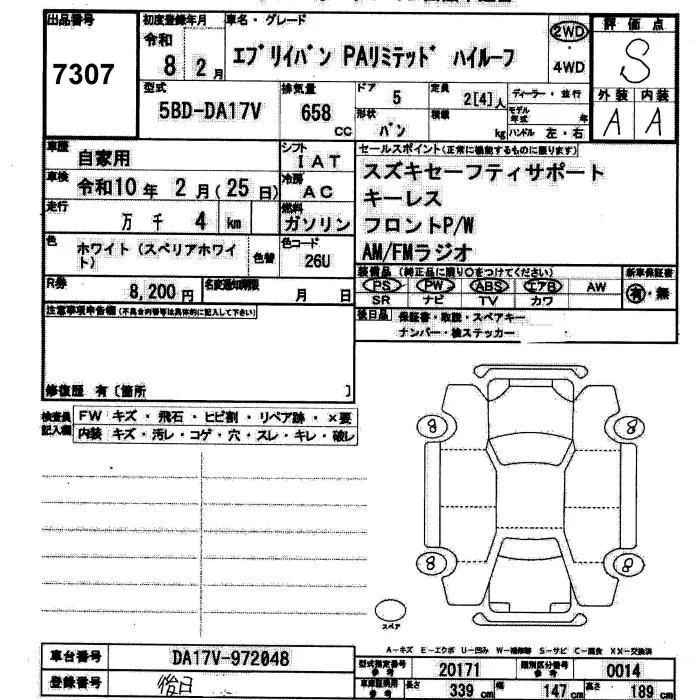 出品番号
7307
初度登録年月
令和
8 2月
車名・グレード
エブリイバン PAリミテッド ハイルーフ
2WD
・
4WD
評価点
S
外装 内装
A A
型式
5BD-DA17V
排気量
658
CC
ドア
5
定員
2[4]人
形状
バン
積載
kg
ディーラー・並行
モデル年式 年
ハンドル 左・右
車歴
自家用
車検
令和10年 2月(25日)
走行
万 千 4 km
シフト
IAT
冷房
AC
燃料
ガソリン
色
ホワイト(スペリアホワイト)
色替
色コード
26U
R券
8,200円
名変通知期限
月 日
セールスポイント(正常に機能するものに限ります)
スズキセーフティサポート
キーレス
フロントP/W
AM/FMラジオ
装備品(純正品に限り○をつけてください)
PS PW ABS エアB AW
SR ナビ TV カワ
新車保証書
有・無
後日品 保証書・取説・スペアキー
ナンバー・検ステッカー
注意事項申告欄(不具合内容等は具体的に記入して下さい)
修復歴 有〔箇所 〕
検査員記入欄
FW キズ・飛石・ヒビ割・リペア跡・×要
内装 キズ・汚レ・コゲ・穴・スレ・キレ・破レ
8 8
8 8
スペア
A-キズ E-エクボ U-凹み W-補修跡 S-サビ C-腐食 XX-交換済
車台番号 DA17V-972048
登録番号 後日
型式指定番号 参考 20171
類別区分番号 参考 0014
長さ 339 cm 幅 147 cm 高さ 189 cm